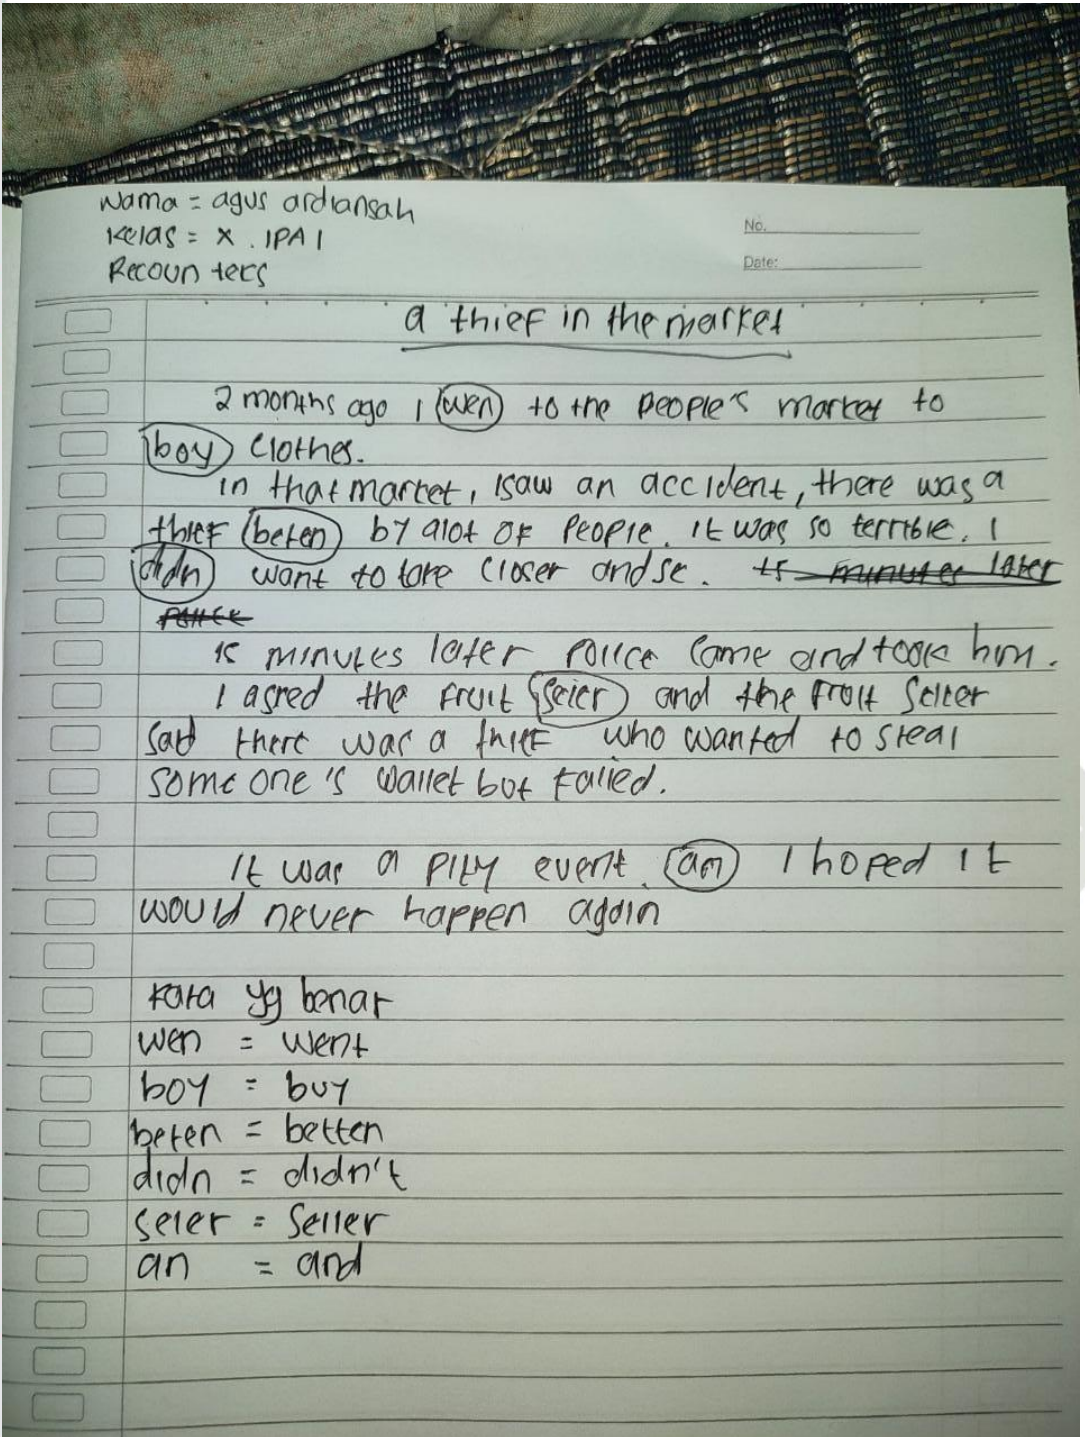 Nama = agus ardiansah
Kelas = X . IPA 1
Recoun teks
No.
Date:
a thief in the market
2 months ago I wen to the people's market to
boy clothes.
in that market, I saw an accident, there was a
thief beten by alot of people. it was so terrible. I
didn want to take closer and se. 15 minutes later
police
15 minutes later police came and took him.
I asked the fruit seler and the fruit seller
said there was a thief who wanted to steal
some one's wallet but failed.
It was a pity event. an I hoped it
would never happen again
kata yg benar
wen = went
boy = buy
beten = betten
didn = didn't
seler = seller
an = and